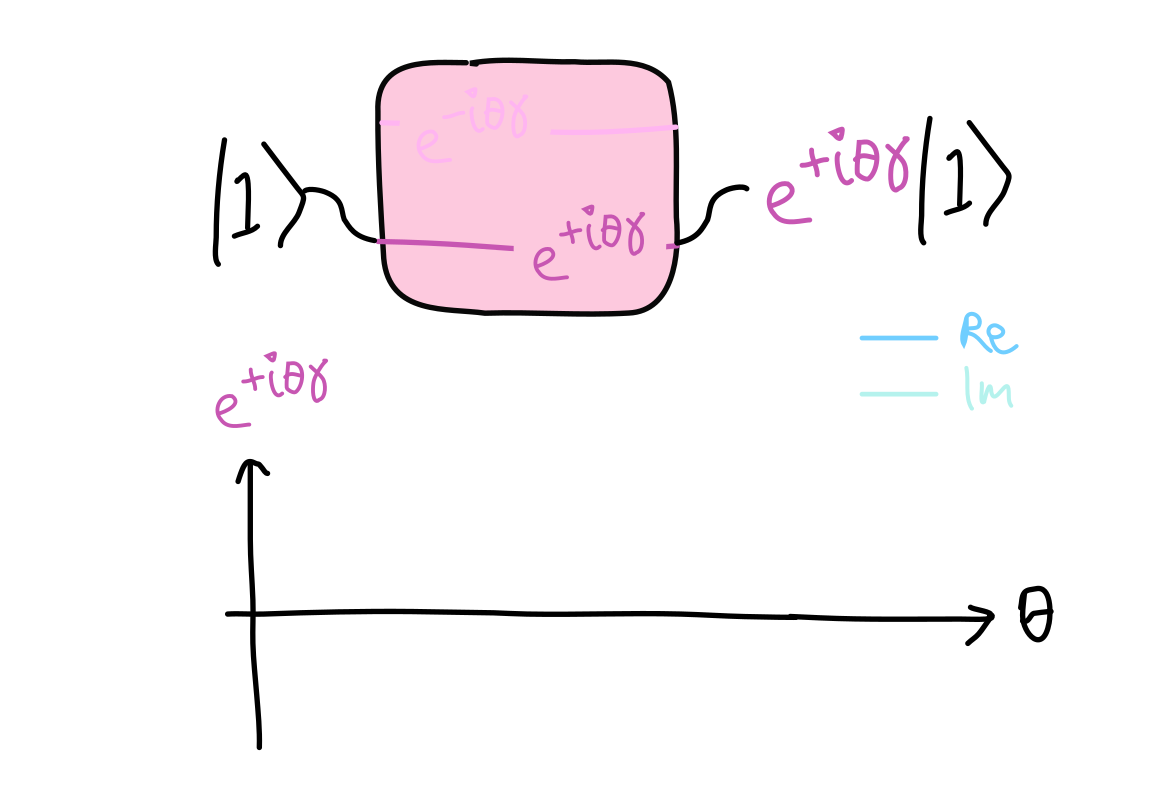 e^{-iθγ}
|1⟩ e^{+iθγ} e^{+iθγ}|1⟩
Re
Im
e^{+iθγ}
θ